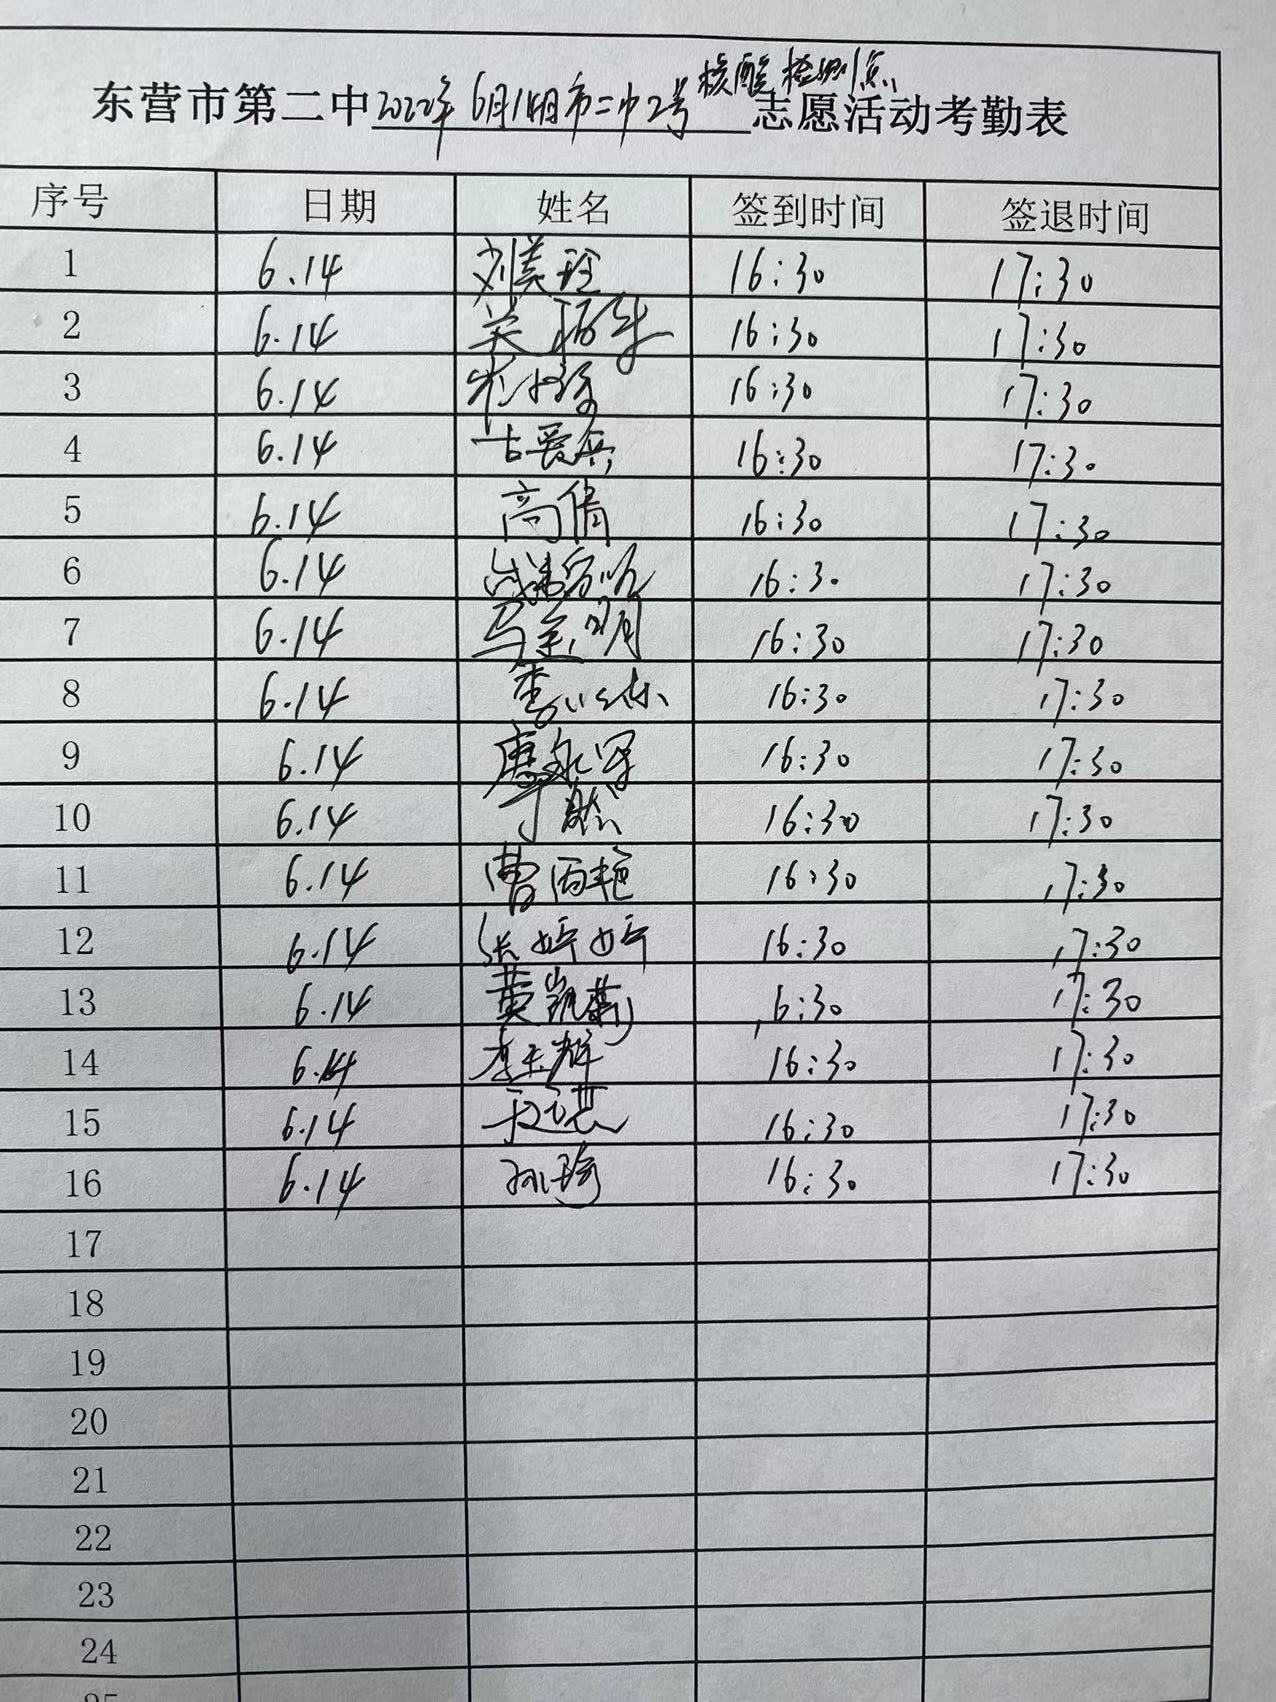 核酸检测点
东营市第二中2022年6月14日市二中2号志愿活动考勤表
序号 日期 姓名 签到时间 签退时间
1 6.14 刘美玲 16:30 17:30
2 6.14 16:30 17:30
3 6.14 16:30 17:30
4 6.14 古爱兵 16:30 17:30
5 6.14 高倩 16:30 17:30
6 6.14 16:30 17:30
7 6.14 马金明 16:30 17:30
8 6.14 16:30 17:30
9 6.14 16:30 17:30
10 6.14 16:30 17:30
11 6.14 曹丙艳 16:30 17:30
12 6.14 张婷婷 16:30 17:30
13 6.14 黄凯菊 16:30 17:30
14 6.14 李玉辉 16:30 17:30
15 6.14 16:30 17:30
16 6.14 孙琦 16:30 17:30
17
18
19
20
21
22
23
24
25